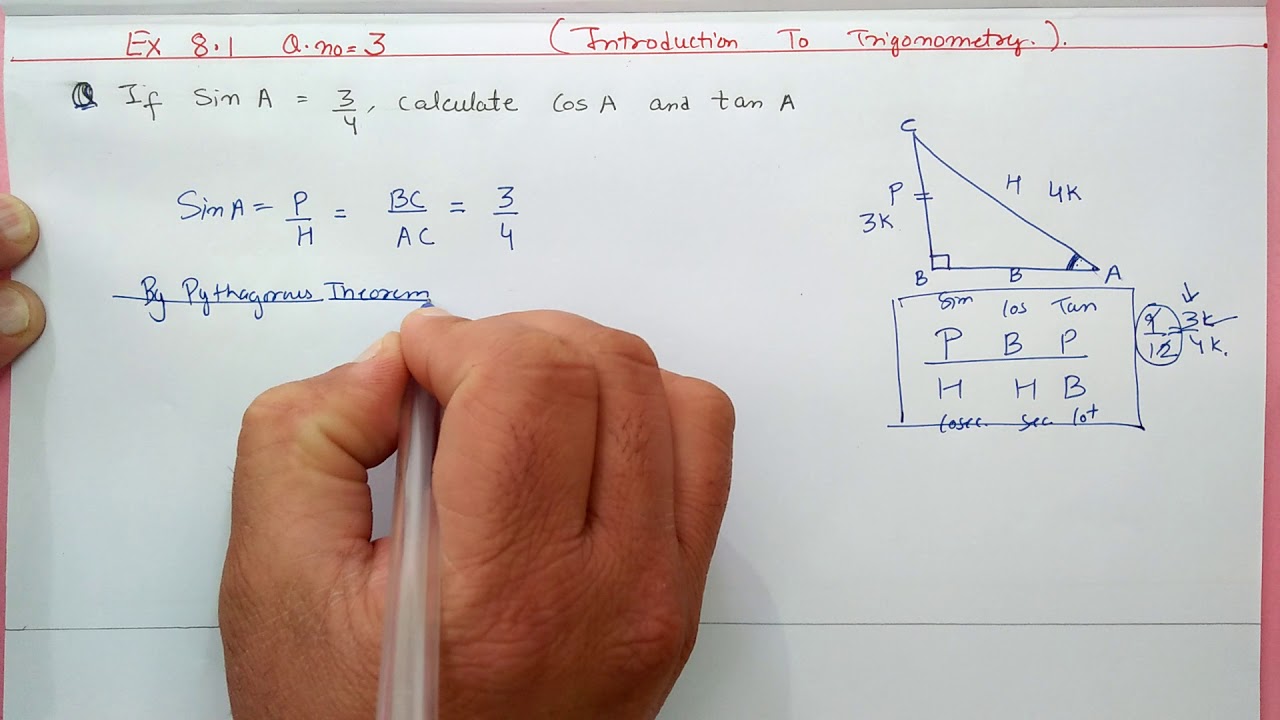 Ex 8.1 Q.no=3 (Introduction To Trigonometry.).
Q If Sin A = 3/4, calculate cos A and tan A
Sin A = P/H = BC/AC = 3/4
By Pythagorus Theorem
C
P H 4K
3K
B B A
Sin Cos Tan
P B P
H H B
Cosec. Sec Cot
9/12 = 3K/4K.